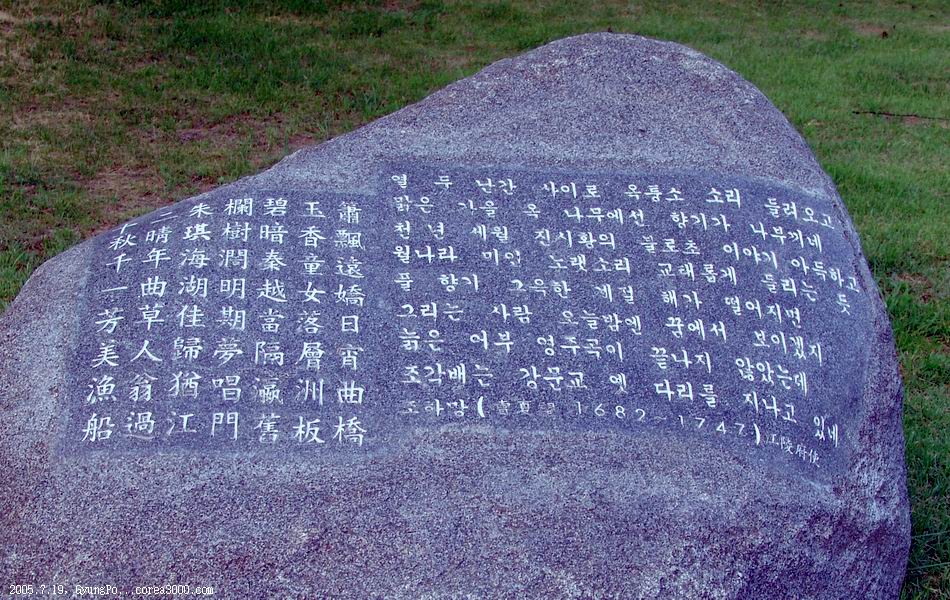 十二朱欄碧玉簫
秋晴琪樹暗香飄
千年海潤秦童遠
一曲湖明越女嬌
芳草佳期當落日
美人歸夢隔層宵
漁翁猶唱瀛洲曲
船過江門舊板橋
열 두 난간 사이로 옥퉁소 소리 들려오고
맑은 가을 옥 나무에선 향기가 나부끼네
천 년 세월 진시황의 불로초 이야기 아득하고
월나라 미인 노랫소리 교태롭게 들리는 듯
풀 향기 그윽한 계절 해가 떨어지면
그리는 사람 오늘밤엔 꿈에서 보이겠지
늙은 어부 영주곡이 끝나지 않았는데
조각배는 강문교 옛 다리를 지나고 있네
조하망( 1682-1747) 江陵府使
2005.7.19, GyungPo...corea3000.com